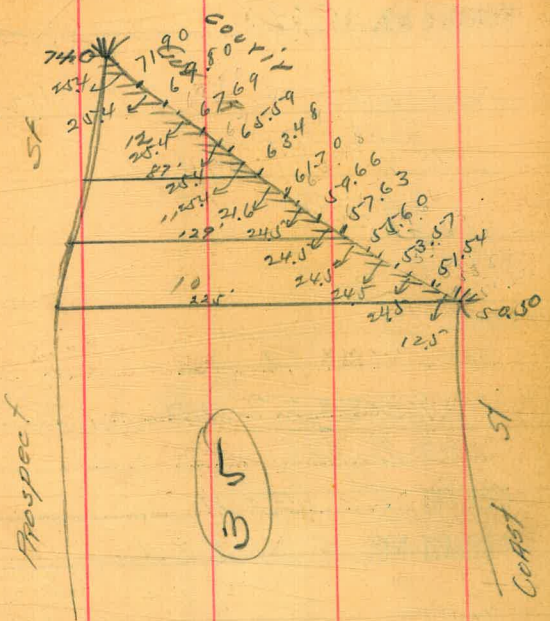 Courir
74.0
71.90
69.80
67.69
65.59
63.48
61.70
59.66
57.63
55.60
53.57
51.54
50.50
25.4
25.4
12
25.4
87'
25.4
25.4
21.6
129'
24.5
24.5
24.5
24.5
24.5
12.5
10
225'
St
Prospect
35
Coast St